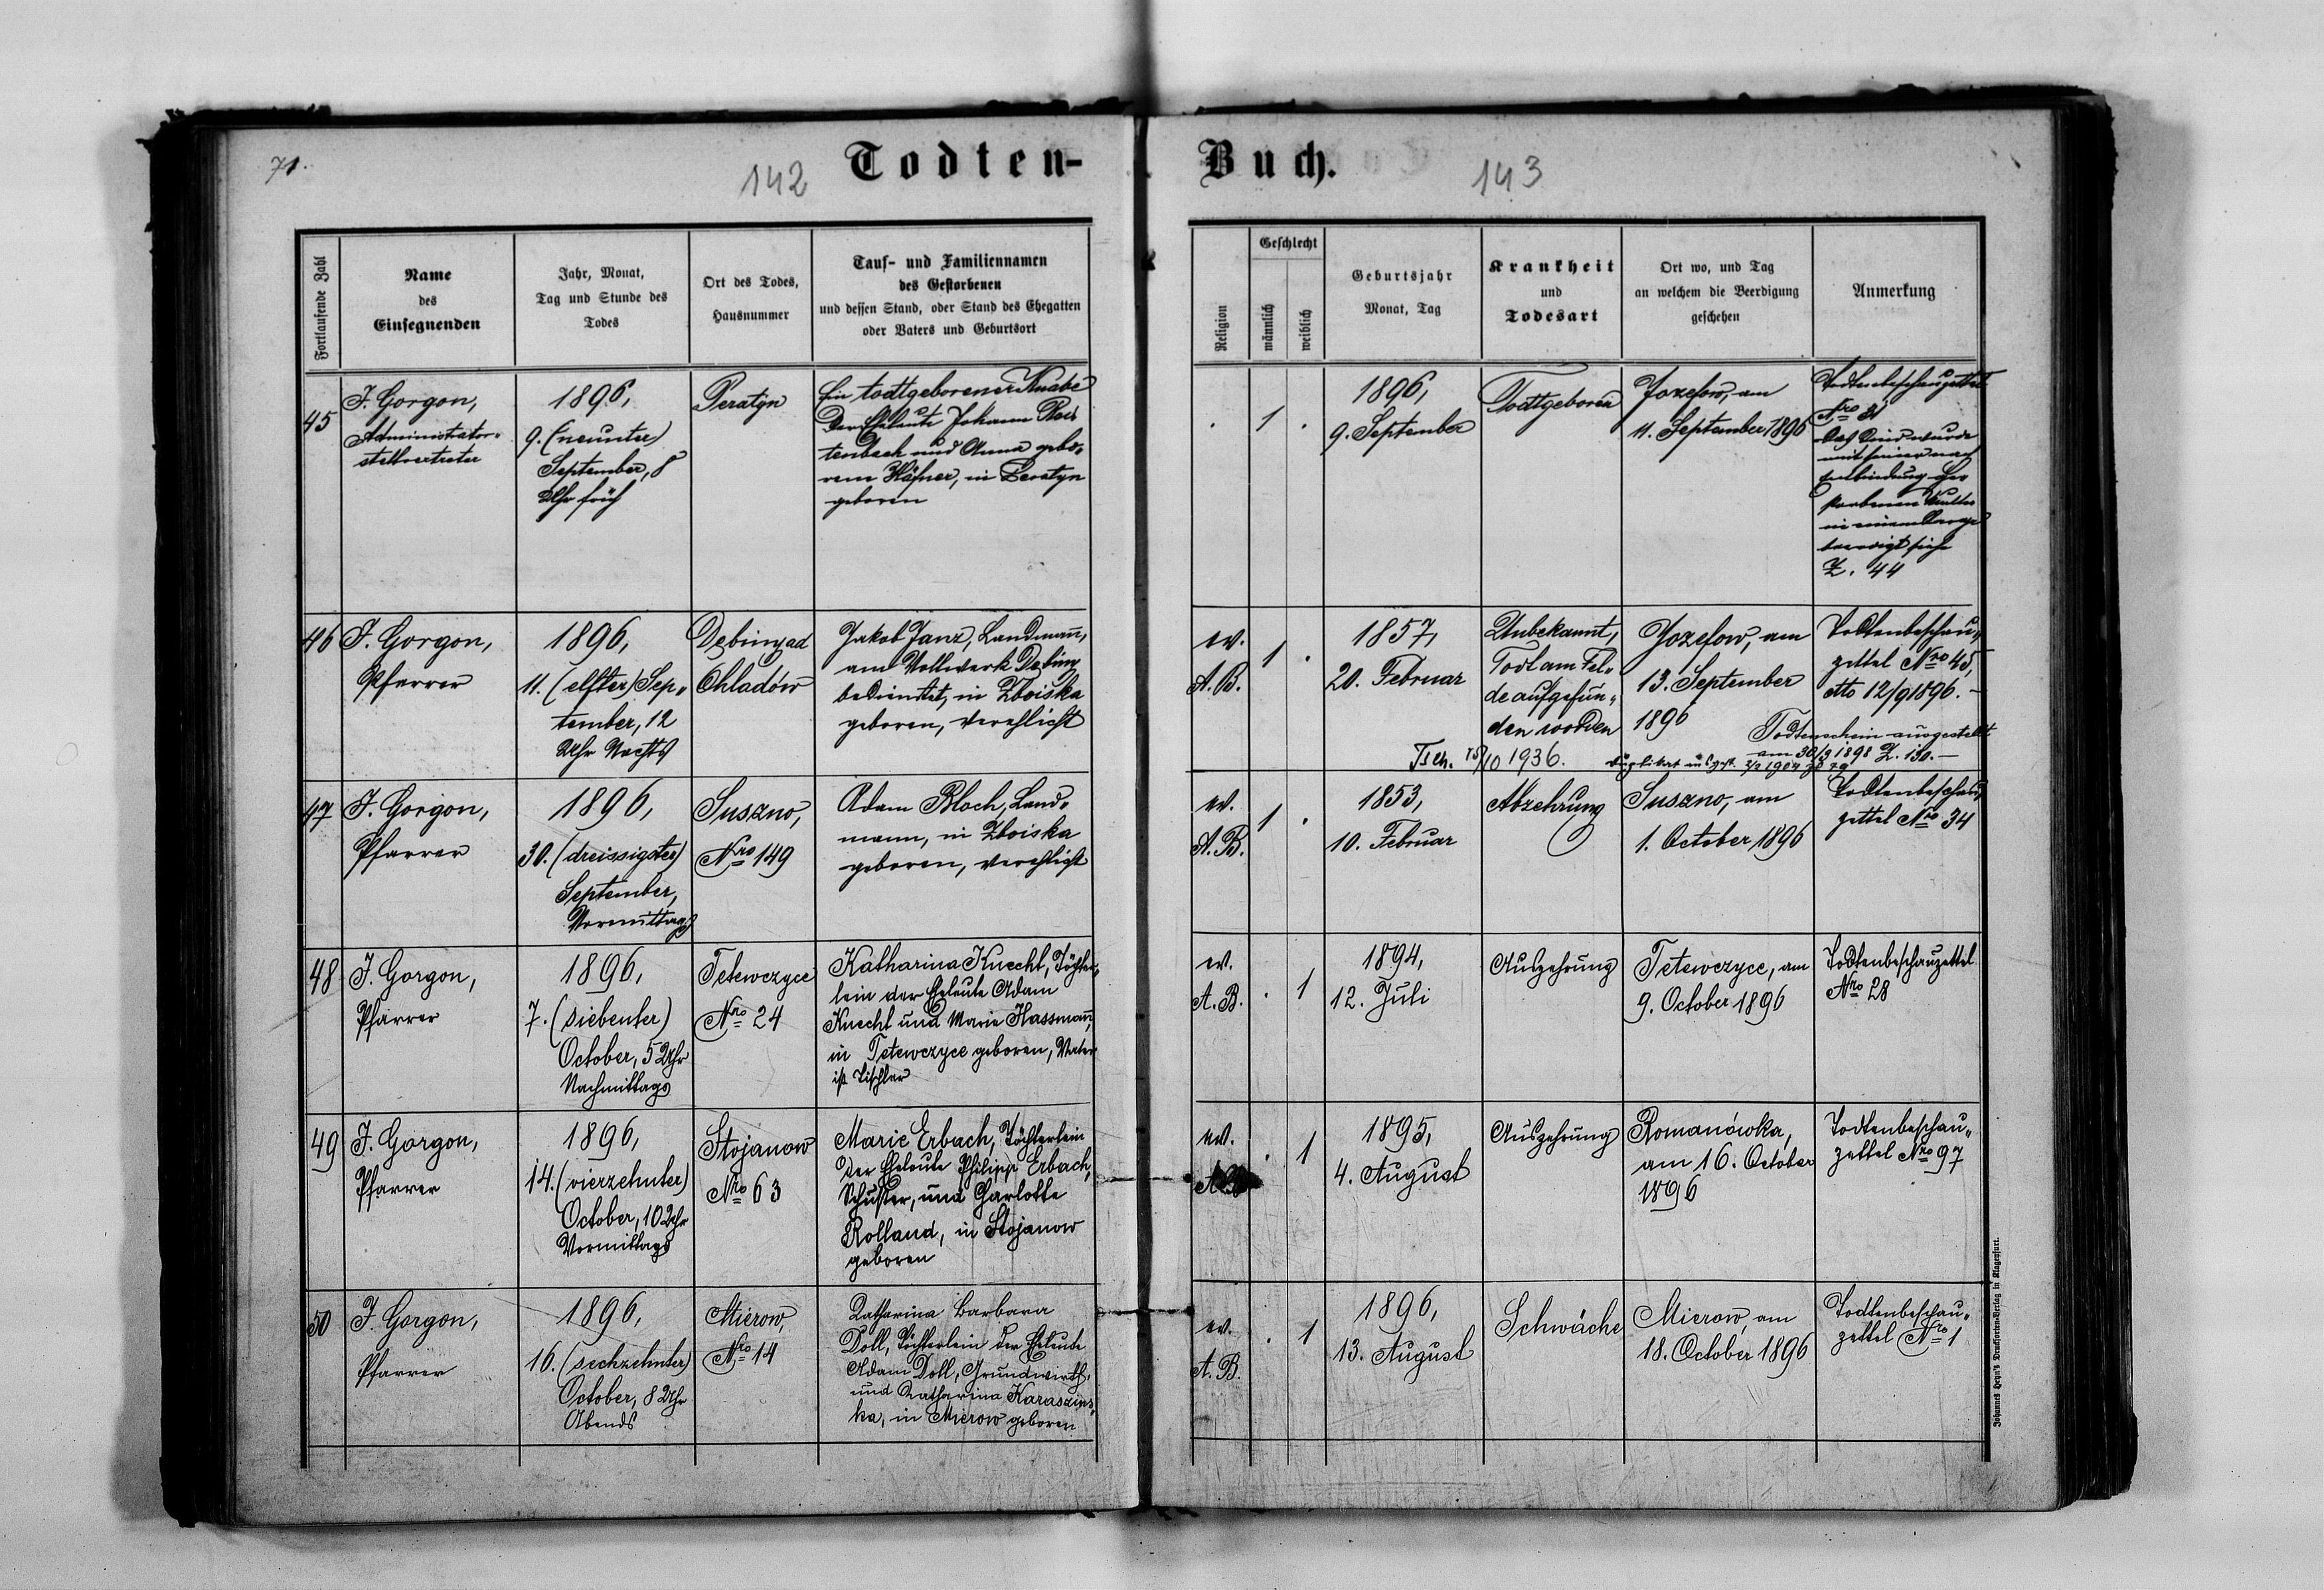 71.
142
Todten-
Buch.
143
Fortlaufende Zahl
Name
des
Einsegnenden
Jahr, Monat,
Tag und Stunde des
Todes
Ort des Todes,
Hausnummer
Tauf- und Familiennamen
des Gestorbenen
und dessen Stand, oder Stand des Ehegatten
oder Vaters und Geburtsort
Religion
Geschlecht
männlich
weiblich
Geburtsjahr
Monat, Tag
Krankheit
und
Todesart
Ort wo, und Tag
an welchem die Beerdigung
geschehen
Anmerkung
45
J. Gorgon,
Administrator-
stellvertreter
1896,
9. (neunter)
September, 8
Uhr früh
Peratyn
Ein todtgeborener Knabe
der Eheleute Johann
tenbach und Anna gebo-
rene Häfner, in Peratyn
geboren
. 1 .
1896,
9. September
Todtgeboren
Jozefow, am
11. September 1896
Todtenbeschauzettel
Nro 31
Das Kind wurde
mit seiner nach
Entbindung ver
storbenen Mutter
in einem Sarge
beerdigt siehe
Z. 44
46
J. Gorgon,
Pfarrer
1896,
11. (elfter) Sep„
tember, 12
Uhr Nachts
Debiny ad
Ohladów
Jakob Janz, Landmann,
am Vollwerk Debiny
bedienstet, in Zboiska
geboren, verehlicht
ev.
A.B.
1 .
1857,
20. Februar
Unbekannt,
Todt am Fel„
de aufgefun„
den worden
Jozefow, am
13. September
1896
Todtenbeschau„
zettel Nro 45,
dto 12/9 1896.-
Todtenschein ausgestellt
am 30/3 1898 Z. 130.-
Tsch. 15/10 1936.
Duplikat ausgest. 2/2 1904 Z 79
47
J. Gorgon,
Pfarrer
1896,
30. (dreissigster)
September,
Vormittags
Suszno,
Nro 149
Adam Bloch, Land-
mann, in Zboiska
geboren, verehlicht
ev.
A.B.
1 .
1853,
10. Februar
Abzehrung
Suszno, am
1. October 1896
Todtenbeschau„
zettel Nro 34
48
J. Gorgon,
Pfarrer
1896,
7. (siebenter)
October, 5 Uhr
Nachmittags
Tetewczyce
Nro 24
Katharina Knecht, Töchter„
lein der Eheleute Adam
Knecht und Marie Hassmann,
in Tetewczyce geboren, Vater
ist Tischler
ev.
A.B.
. 1
1894,
12. Juli
Auszehrung
Tetewczyce, am
9. October 1896
Todtenbeschauzettel
Nro 28
49
J. Gorgon,
Pfarrer
1896,
14. (vierzehnter)
October, 10 Uhr
Vormittags
Stojanow
Nro 63
Marie Erbach, Töchterlein
der Eheleute Philipp Erbach,
Schuster, und Charlotte
Rolland, in Stojanow
geboren
ev.
. 1
1895,
4. August
Auszehrung
Romanówka,
am 16. October
1896
Todtenbeschau„
zettel Nro 97
50
J. Gorgon,
Pfarrer
1896,
16. (sechzehnter)
October, 8 Uhr
Abends
Mierow,
Nro 14
Katharina Barbara
Doll, Töchterlein der Eheleute
Adam Doll, Grundwirth,
und Katharina Karaszins„
ka, in Mierow geboren
ev.
A.B.
. 1
1896,
13. August
Schwäche
Mierow, am
18. October 1896
Todtenbeschau„
zettel Nro 1
Johannes Heyn's Drucksorten-Verlag in Klagenfurt.